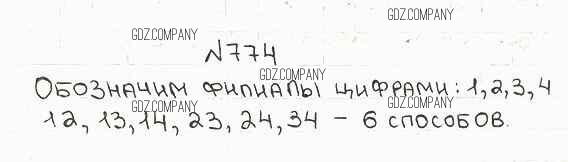 GDZ.COMPANY
GDZ.COMPANY
N774
GDZ.COMPANY
GDZ.COMPANY
Обозначим филиалы цифрами: 1, 2, 3, 4
GDZ.COMPANY
GDZ.COMPANY
12, 13, 14, 23, 24, 34 – 6 способов.
GDZ.COMPANY